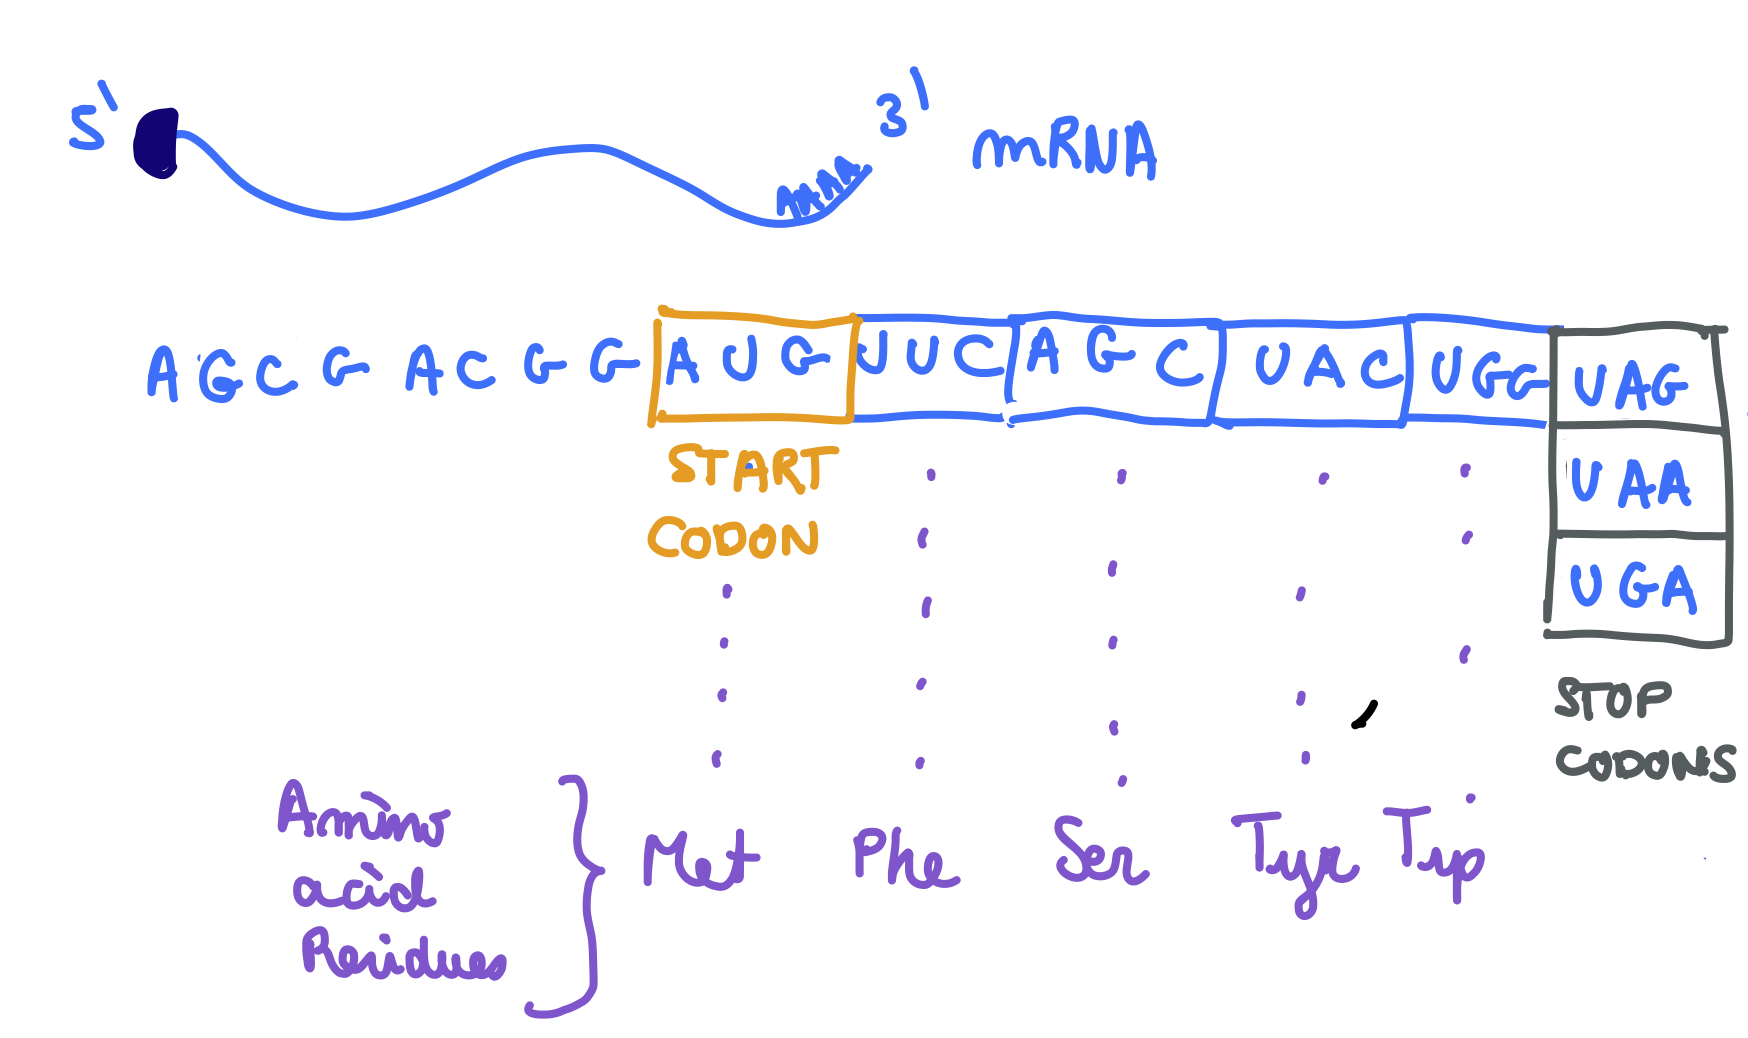 5' AAAA 3' mRNA
AGCGACGG AUG UUC AGC UAC UGG UAG
UAA
UGA
START
CODON
STOP
CODONS
Amino
acid
Residues
Met Phe Ser Tyr Trp